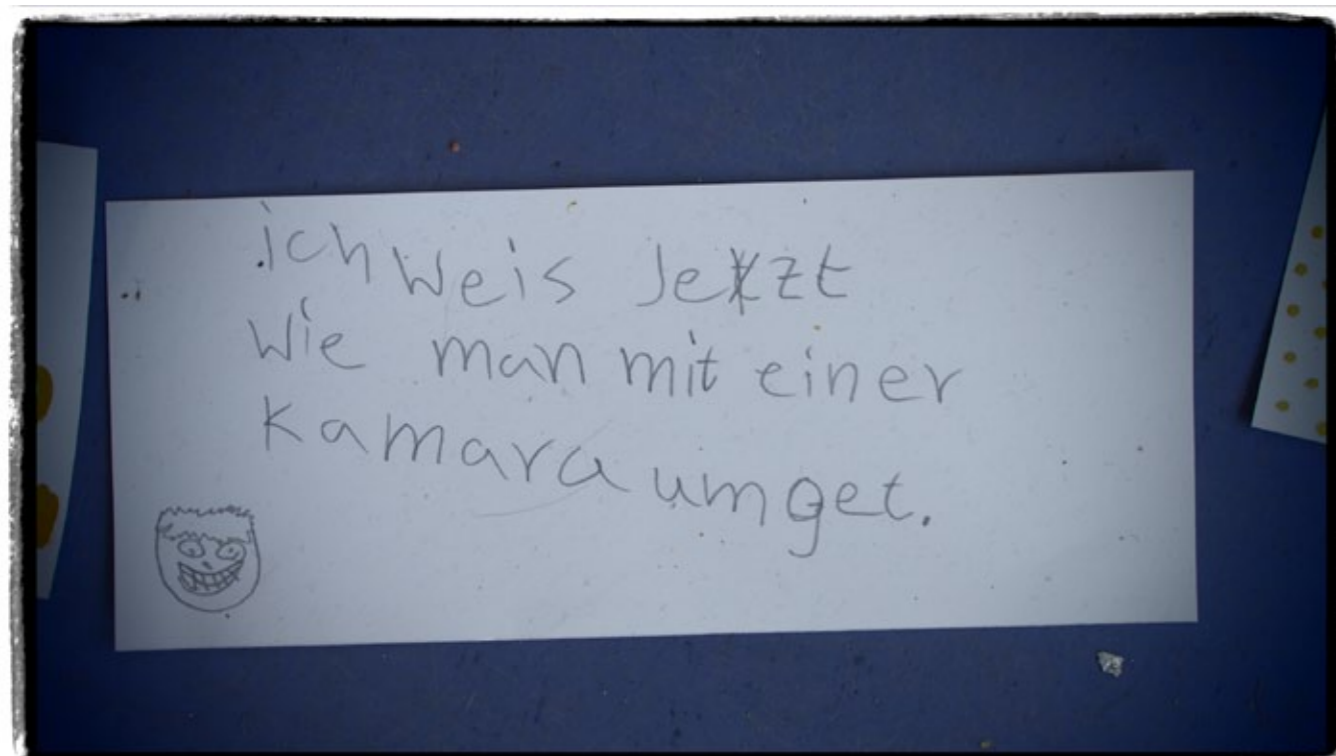 ich weis Jetzt
wie man mit einer
Kamara umget.